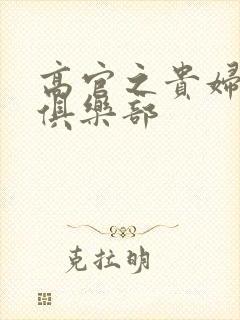 高官之貴婦
俱樂部
克拉明